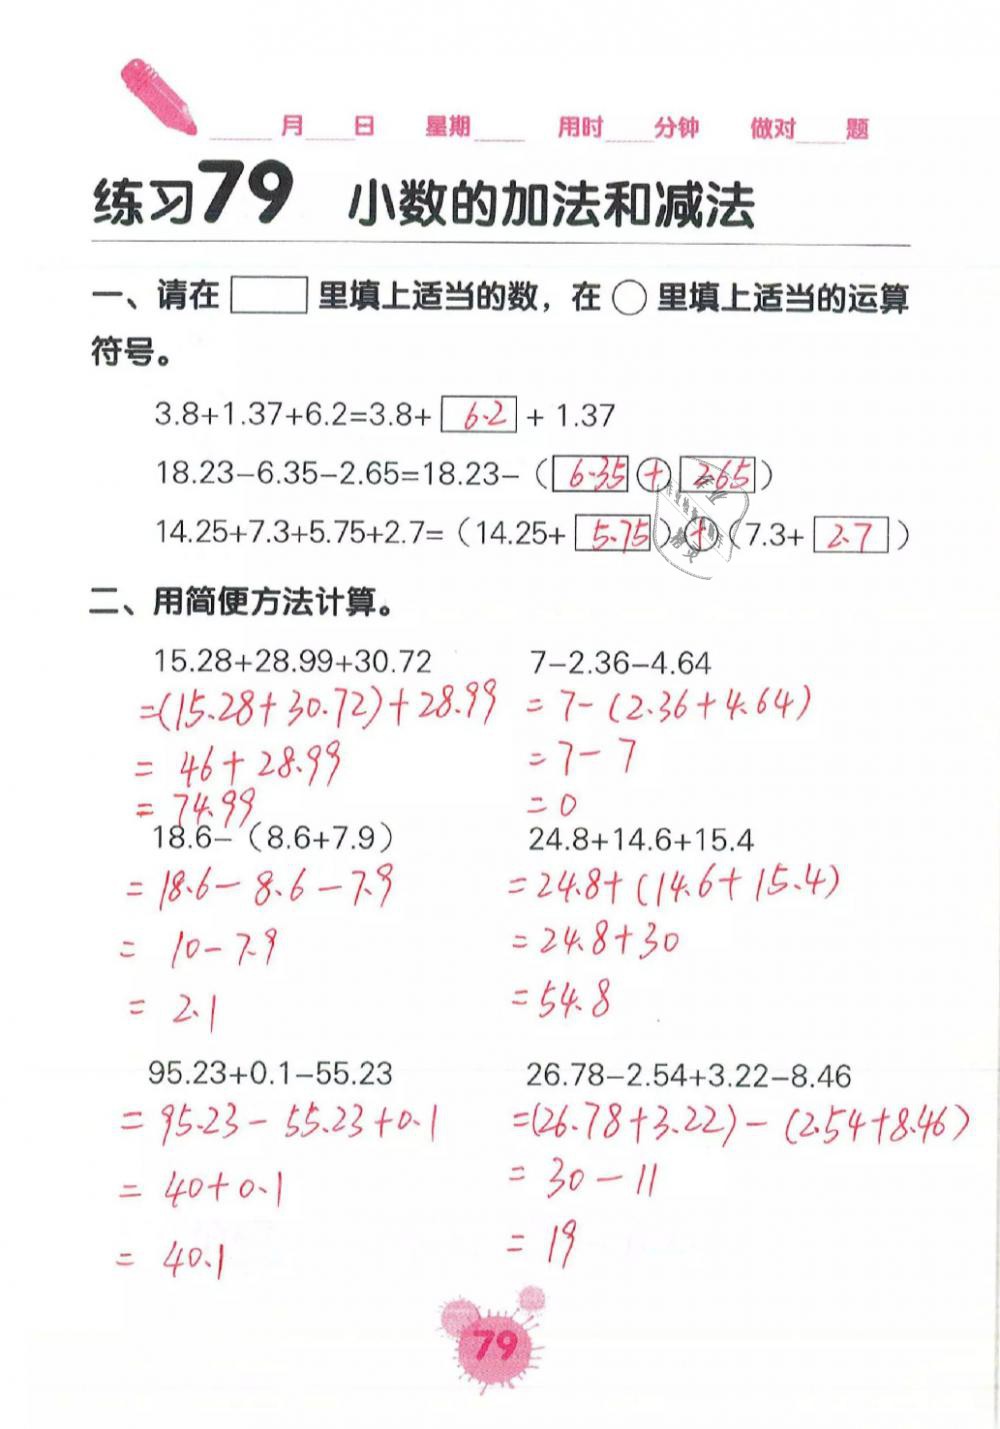 月 日 星期 用时 分钟 做对 题
练习79 小数的加法和减法
一、请在 里填上适当的数，在 ○ 里填上适当的运算
符号。
3.8+1.37+6.2=3.8+ 6.2 + 1.37
18.23−6.35−2.65=18.23−（ 6.35 + 2.65 ）
14.25+7.3+5.75+2.7=（14.25+ 5.75 ）+（7.3+ 2.7 ）
二、用简便方法计算。
15.28+28.99+30.72
=(15.28+30.72)+28.99
= 46+28.99
= 74.99
7−2.36−4.64
= 7-(2.36+4.64)
= 7-7
= 0
18.6−（8.6+7.9）
= 18.6-8.6-7.9
= 10-7.9
= 2.1
24.8+14.6+15.4
= 24.8+(14.6+15.4)
= 24.8+30
= 54.8
95.23+0.1−55.23
= 95.23-55.23+0.1
= 40+0.1
= 40.1
26.78−2.54+3.22−8.46
=(26.78+3.22)-(2.54+8.46)
= 30-11
= 19
79